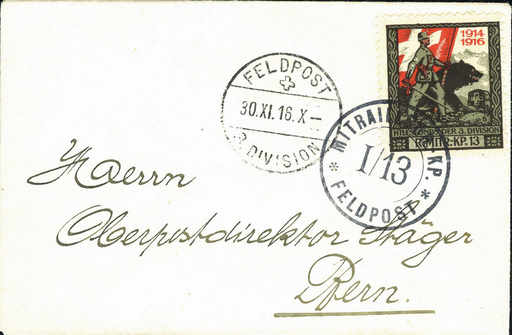 1914
1916
FELDPOST
30.XI.16.X–
3. DIVISION
KRIEGSJAHR DER 3. DIVISION
KP. 13
MITRAIL KP.
I/13
FELDPOST
Herrn
Oberpostdirektor Stäger
Bern.